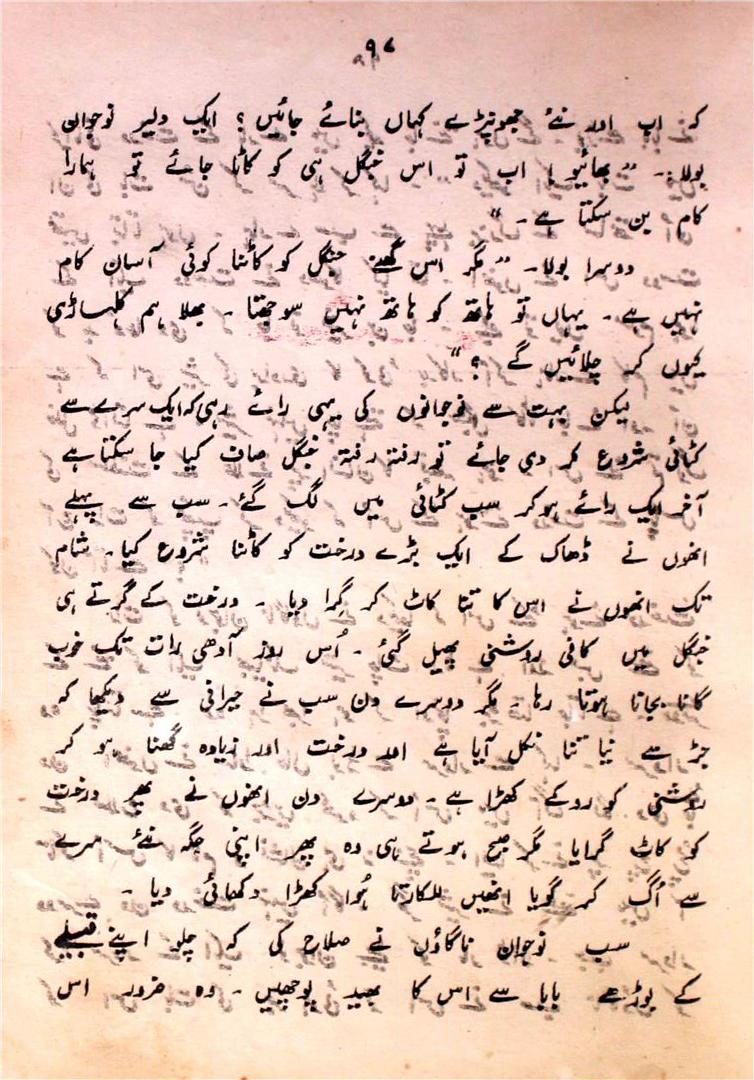 ۹۷
کہ اب اور نئے جھونپڑے کہاں بنائے جائیں؟ ایک دلیر نوجوان
بولا:۔ "بھائیو! اب تو اس جنگل ہی کو کاٹا جائے تو ہمارا
کام بن سکتا ہے۔"
دوسرا بولا۔ "مگر اس گھنے جنگل کو کاٹنا کوئی آسان کام
نہیں ہے۔ یہاں تو ہاتھ کو ہاتھ نہیں سوجھتا۔ بھلا ہم کلہاڑی
کیوں کر چلائیں گے؟"
لیکن بہت سے نوجوانوں کی یہی رائے رہی کہ ایک سرے سے
کٹائی شروع کر دی جائے تو رفتہ رفتہ جنگل صاف کیا جا سکتا ہے
آخر ایک رائے ہوکر سب کٹائی میں لگ گئے۔ سب سے پہلے
انھوں نے ڈھاک کے ایک بڑے درخت کو کاٹنا شروع کیا۔ شام
تک انھوں نے اس کا تنا کاٹ کر گِرا دیا۔ درخت کے گرتے ہی
جنگل میں کافی روشنی پھیل گئی۔ اُس روز آدھی رات تک خوب
گانا بجانا ہوتا رہا۔ مگر دوسرے دن سب نے حیرانی سے دیکھا کہ
جڑ سے نیا تنا نکل آیا ہے اور درخت اور زیادہ گھنا ہو کر
روشنی کو روکے کھڑا ہے۔ دوسرے دن انھوں نے پھر درخت
کو کاٹ گرایا مگر صبح ہوتے ہی وہ پھر اپنی جگہ نئے سرے
سے اُگ کر گویا انھیں للکارتا ہُوا کھڑا دکھائی دیا۔
سب نوجوان ناگاؤں نے صلاح کی کہ چلو اپنے قبیلے
کے بوڑھے بابا سے اس کا بھید پوچھیں۔ وہ ضرور اس